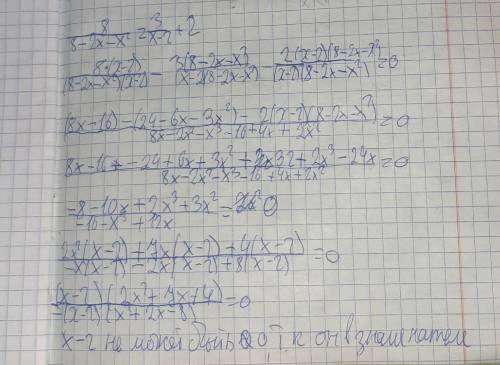 8/(8-2x-x²) = 3/(x-2) + 2
8(x-2)/((8-2x-x²)(x-2)) - 3(8-2x-x²)/((x-2)(8-2x-x²)) - 2(x-2)(8-2x-x²)/((x-2)(8-2x-x²)) = 0
((8x-16)-(24-6x-3x²)-2(x-2)(8-2x-x²))/(8x-2x²-x³-16+4x+2x²) = 0
/(8x-2x²-x³-16+4x+2x²) = 0
(-8-10x+2x³+3x²)/(-16-x³+12x) = 0
(2x²(x-2)+7x(x-2)+4(x-2))/(-x²(x-2)-2x(x-2)+8(x-2)) = 0
((x-2)(2x²+7x+4))/(-(x-2)(x²+2x-8)) = 0
x-2 не может быть 0, т.к он в знаменателе